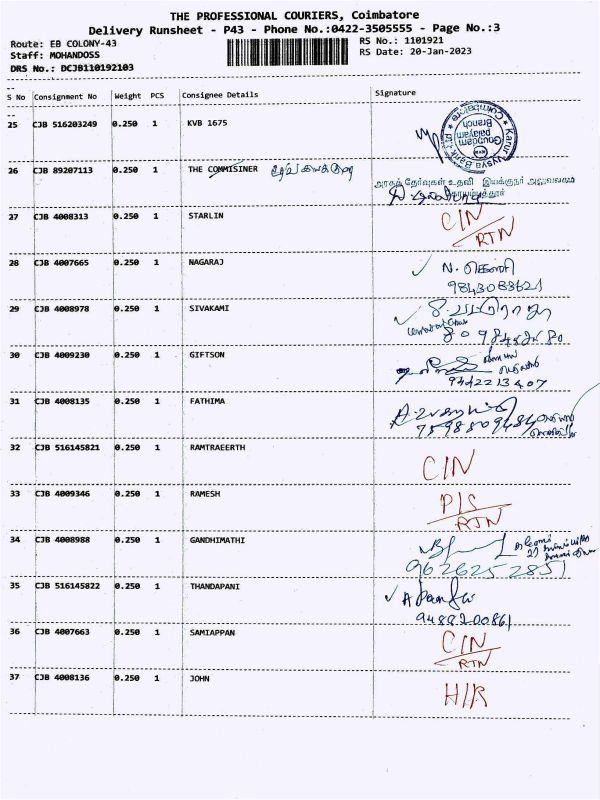 THE PROFESSIONAL COURIERS, Coimbatore
Delivery Runsheet - P43 - Phone No.:0422-3505555 - Page No.:3
Route: EB COLONY-43
RS No.: 1101921
Staff: MOHANDOSS
RS Date: 20-Jan-2023
DRS No.: DCJB110192103
S No Consignment No Weight PCS Consignee Details Signature
25 CJB 516203249 0.250 1 KVB 1675
Karur Vysya Bank
Goundam
palayam
Branch
Coimbatore
26 CJB 89207113 0.250 1 THE COMMISINER
அரசுத் தேர்வுகள் உதவி இயக்குநர் அலுவலகம்
கோயம்புத்தூர்
27 CJB 4008313 0.250 1 STARLIN CIN
RTN
28 CJB 4007665 0.250 1 NAGARAJ N.
9843083621
29 CJB 4008978 0.250 1 SIVAKAMI
30 CJB 4009230 0.250 1 GIFTSON
9442213407
31 CJB 4008135 0.250 1 FATHIMA
32 CJB 516145821 0.250 1 RAMTRAEERTH CIN
33 CJB 4009346 0.250 1 RAMESH P/S
RTN
34 CJB 4008988 0.250 1 GANDHIMATHI
9626252851
35 CJB 516145822 0.250 1 THANDAPANI
9489200861
36 CJB 4007663 0.250 1 SAMIAPPAN CIN
RTN
37 CJB 4008136 0.250 1 JOHN H/R